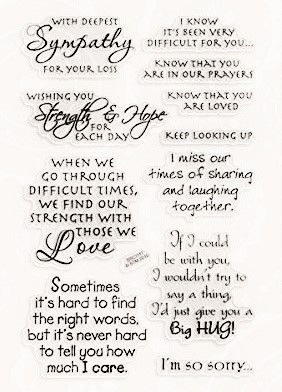 WITH DEEPEST
Sympathy
FOR YOUR LOSS
I KNOW
IT'S BEEN VERY
DIFFICULT FOR YOU...
KNOW THAT YOU
ARE IN OUR PRAYERS
WISHING YOU
Strength & Hope
FOR
EACH DAY
KNOW THAT YOU
ARE LOVED
KEEP LOOKING UP
WHEN WE
GO THROUGH
DIFFICULT TIMES,
WE FIND OUR
STRENGTH WITH
THOSE WE
Love
I miss our
times of sharing
and laughing
together.
If I could
be with you,
I wouldn't try to
say a thing,
I'd just give you a
Big HUG!
Sometimes
it's hard to find
the right words,
but it's never hard
to tell you how
much I care.
I'm so sorry...